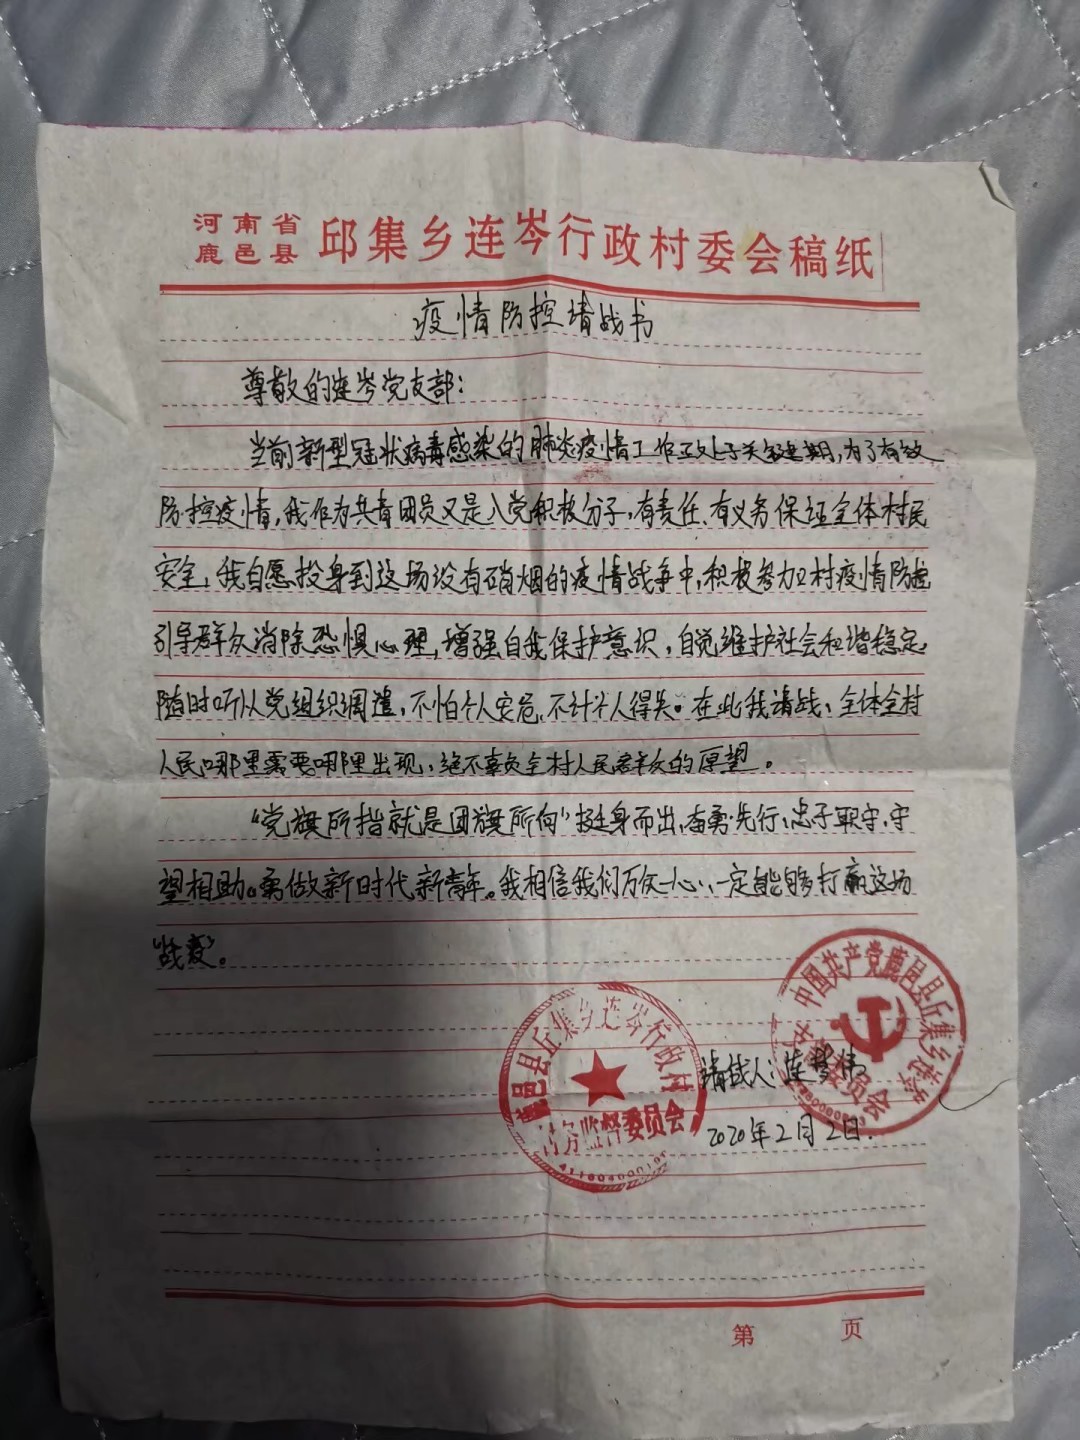 河南省
鹿邑县
邱集乡连岑行政村委会稿纸
疫情防控请战书
尊敬的连岑党支部：
当前新型冠状病毒感染的肺炎疫情工作正处于关键期，为了有效
防控疫情，我作为共青团员又是入党积极分子，有责任、有义务保证全体村民
安全，我自愿投身到这场没有硝烟的疫情战争中，积极参加村疫情防控
引导群众消除恐惧心理，增强自我保护意识，自觉维护社会和谐稳定，
随时听从党组织调遣，不怕个人安危、不计个人得失。在此我请战，全体全村
人民哪里需要哪里出现，绝不辜负全村人民群众的愿望。
“党旗所指就是团旗所向”挺身而出，奋勇先行，忠于职守，守
望相助。勇做新时代新青年。我相信我们万众一心，一定能够打赢这场
“战疫”。
请战人：连梦伟
2020年2月2日.
鹿邑县丘集乡连岑行政村
村务监督委员会
中国共产党鹿邑县丘集乡连岑
委员会
第 页